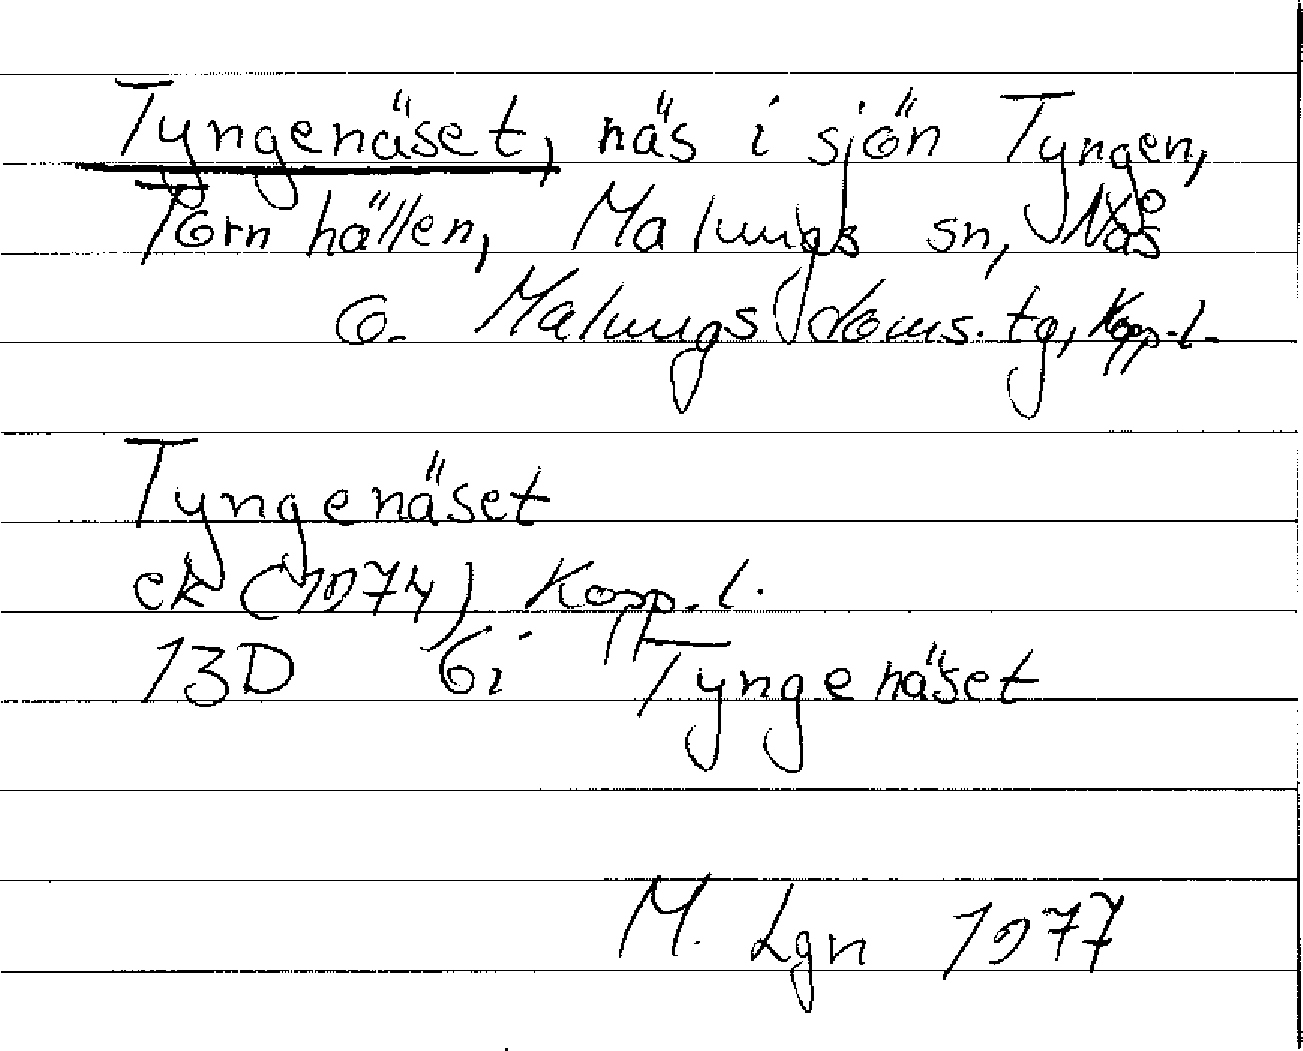 Tyngenäset, näs i sjön Tyngen,
Törnhällen, Malungs sn, Nås
o. Malungs doms. tg, Kopp. l.
Tyngenäset
ek (1974) Kopp. l.
13D 6i Tyngenäset
M. Lgn 1977